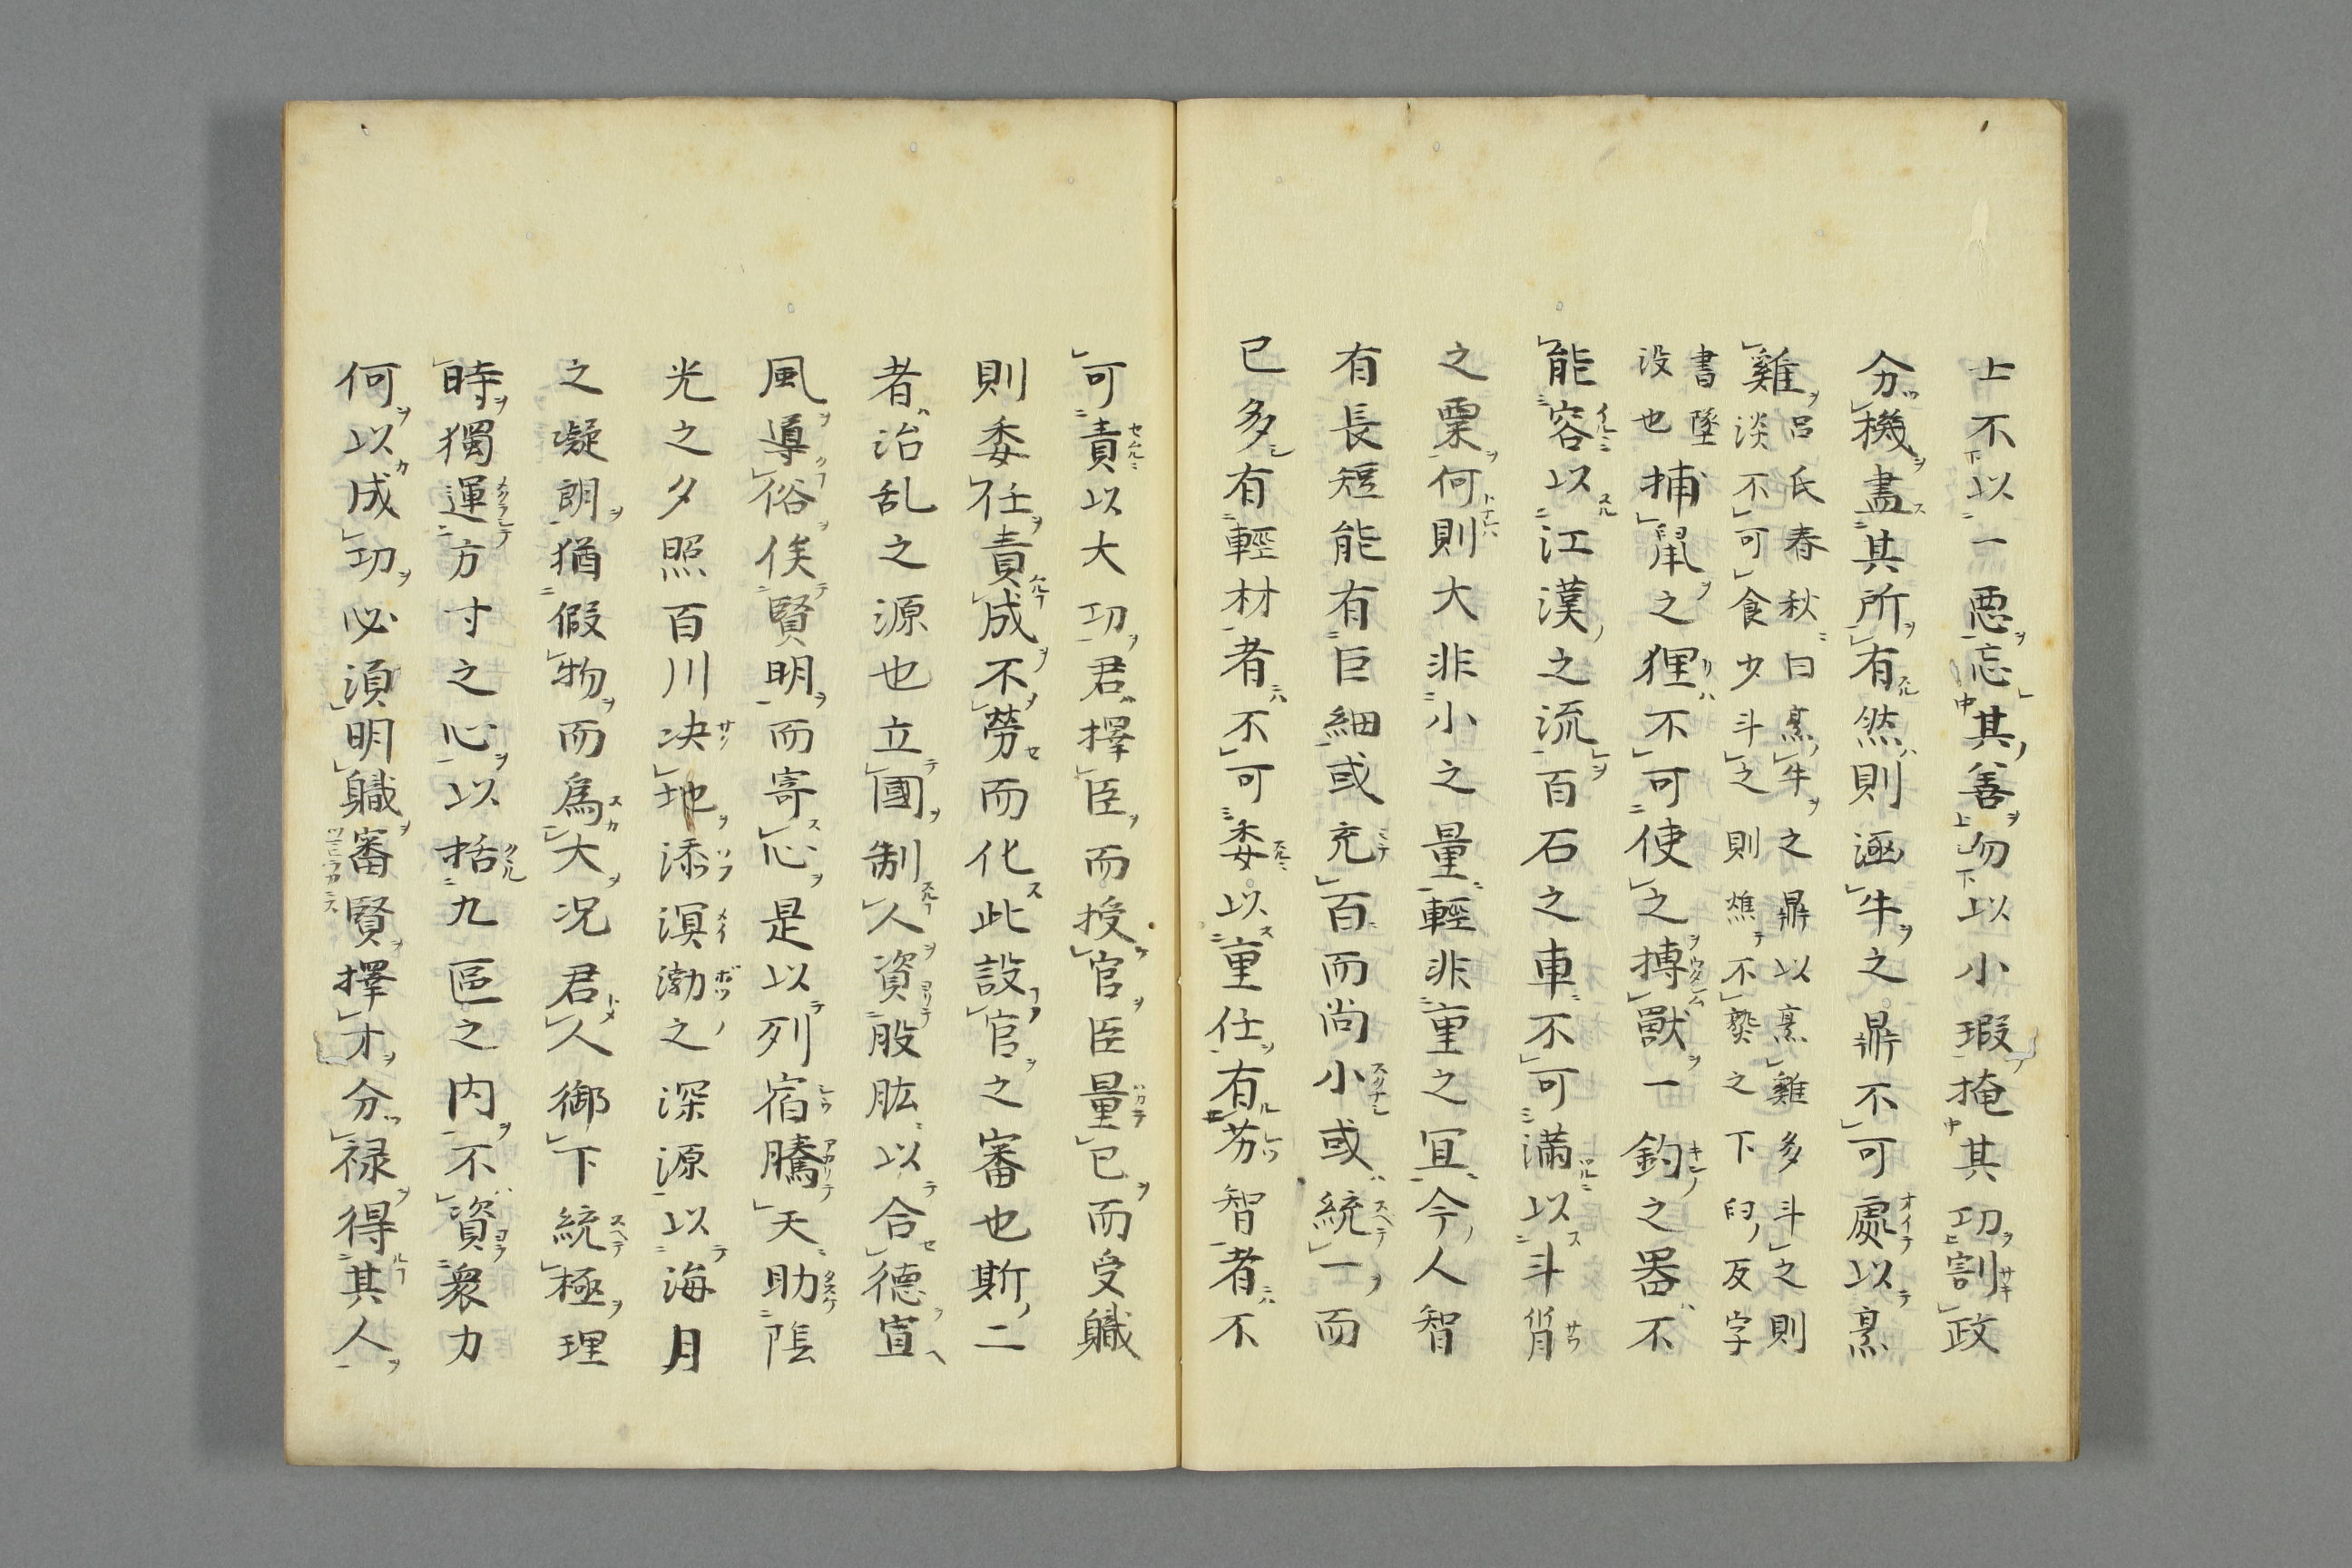 士不以一悪忘其善勿以小瑕掩其功割政
分機盡其所有然則凾牛之鼎不可處以烹
雞
呂氏春秋曰烹牛之鼎以烹雞多斗之則
淡不可食少斗之則燋不熟之下臼反字
書墜
没也
捕鼠之狸不可使之搏獣一鈞之器不
能容以江漢之流百石之車不可満以斗筲
之粟何則大非小之量輕非重之冝今人智
有長短能有巨細或充百而尚小或統一而
已多有輕材者不可委以重任有劣智者不
可責以大功君擇臣而授官臣量已而受職
則委任責成不勞而化此設官之審也斯二
者治乱之源也立國制人資股肱以合徳宣
風導俗俟賢明而寄心是以列宿騰天助陰
光之夕照百川决地添溟渤之深源以海月
之凝朗猶假物而為大况君人御下統極理
時獨運方寸之心以括九區之内不資衆力
何以成功必須明職審賢擇才分禄得其人